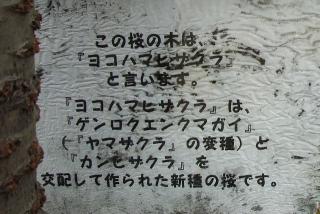 この桜の木は、
『ヨコハマヒザクラ』
と言います。
『ヨコハマヒザクラ』は、
『ゲンロクエンクマガイ』
(『ヤマザクラ』の変種)と
『カンヒザクラ』を
交配して作られた新種の桜です。